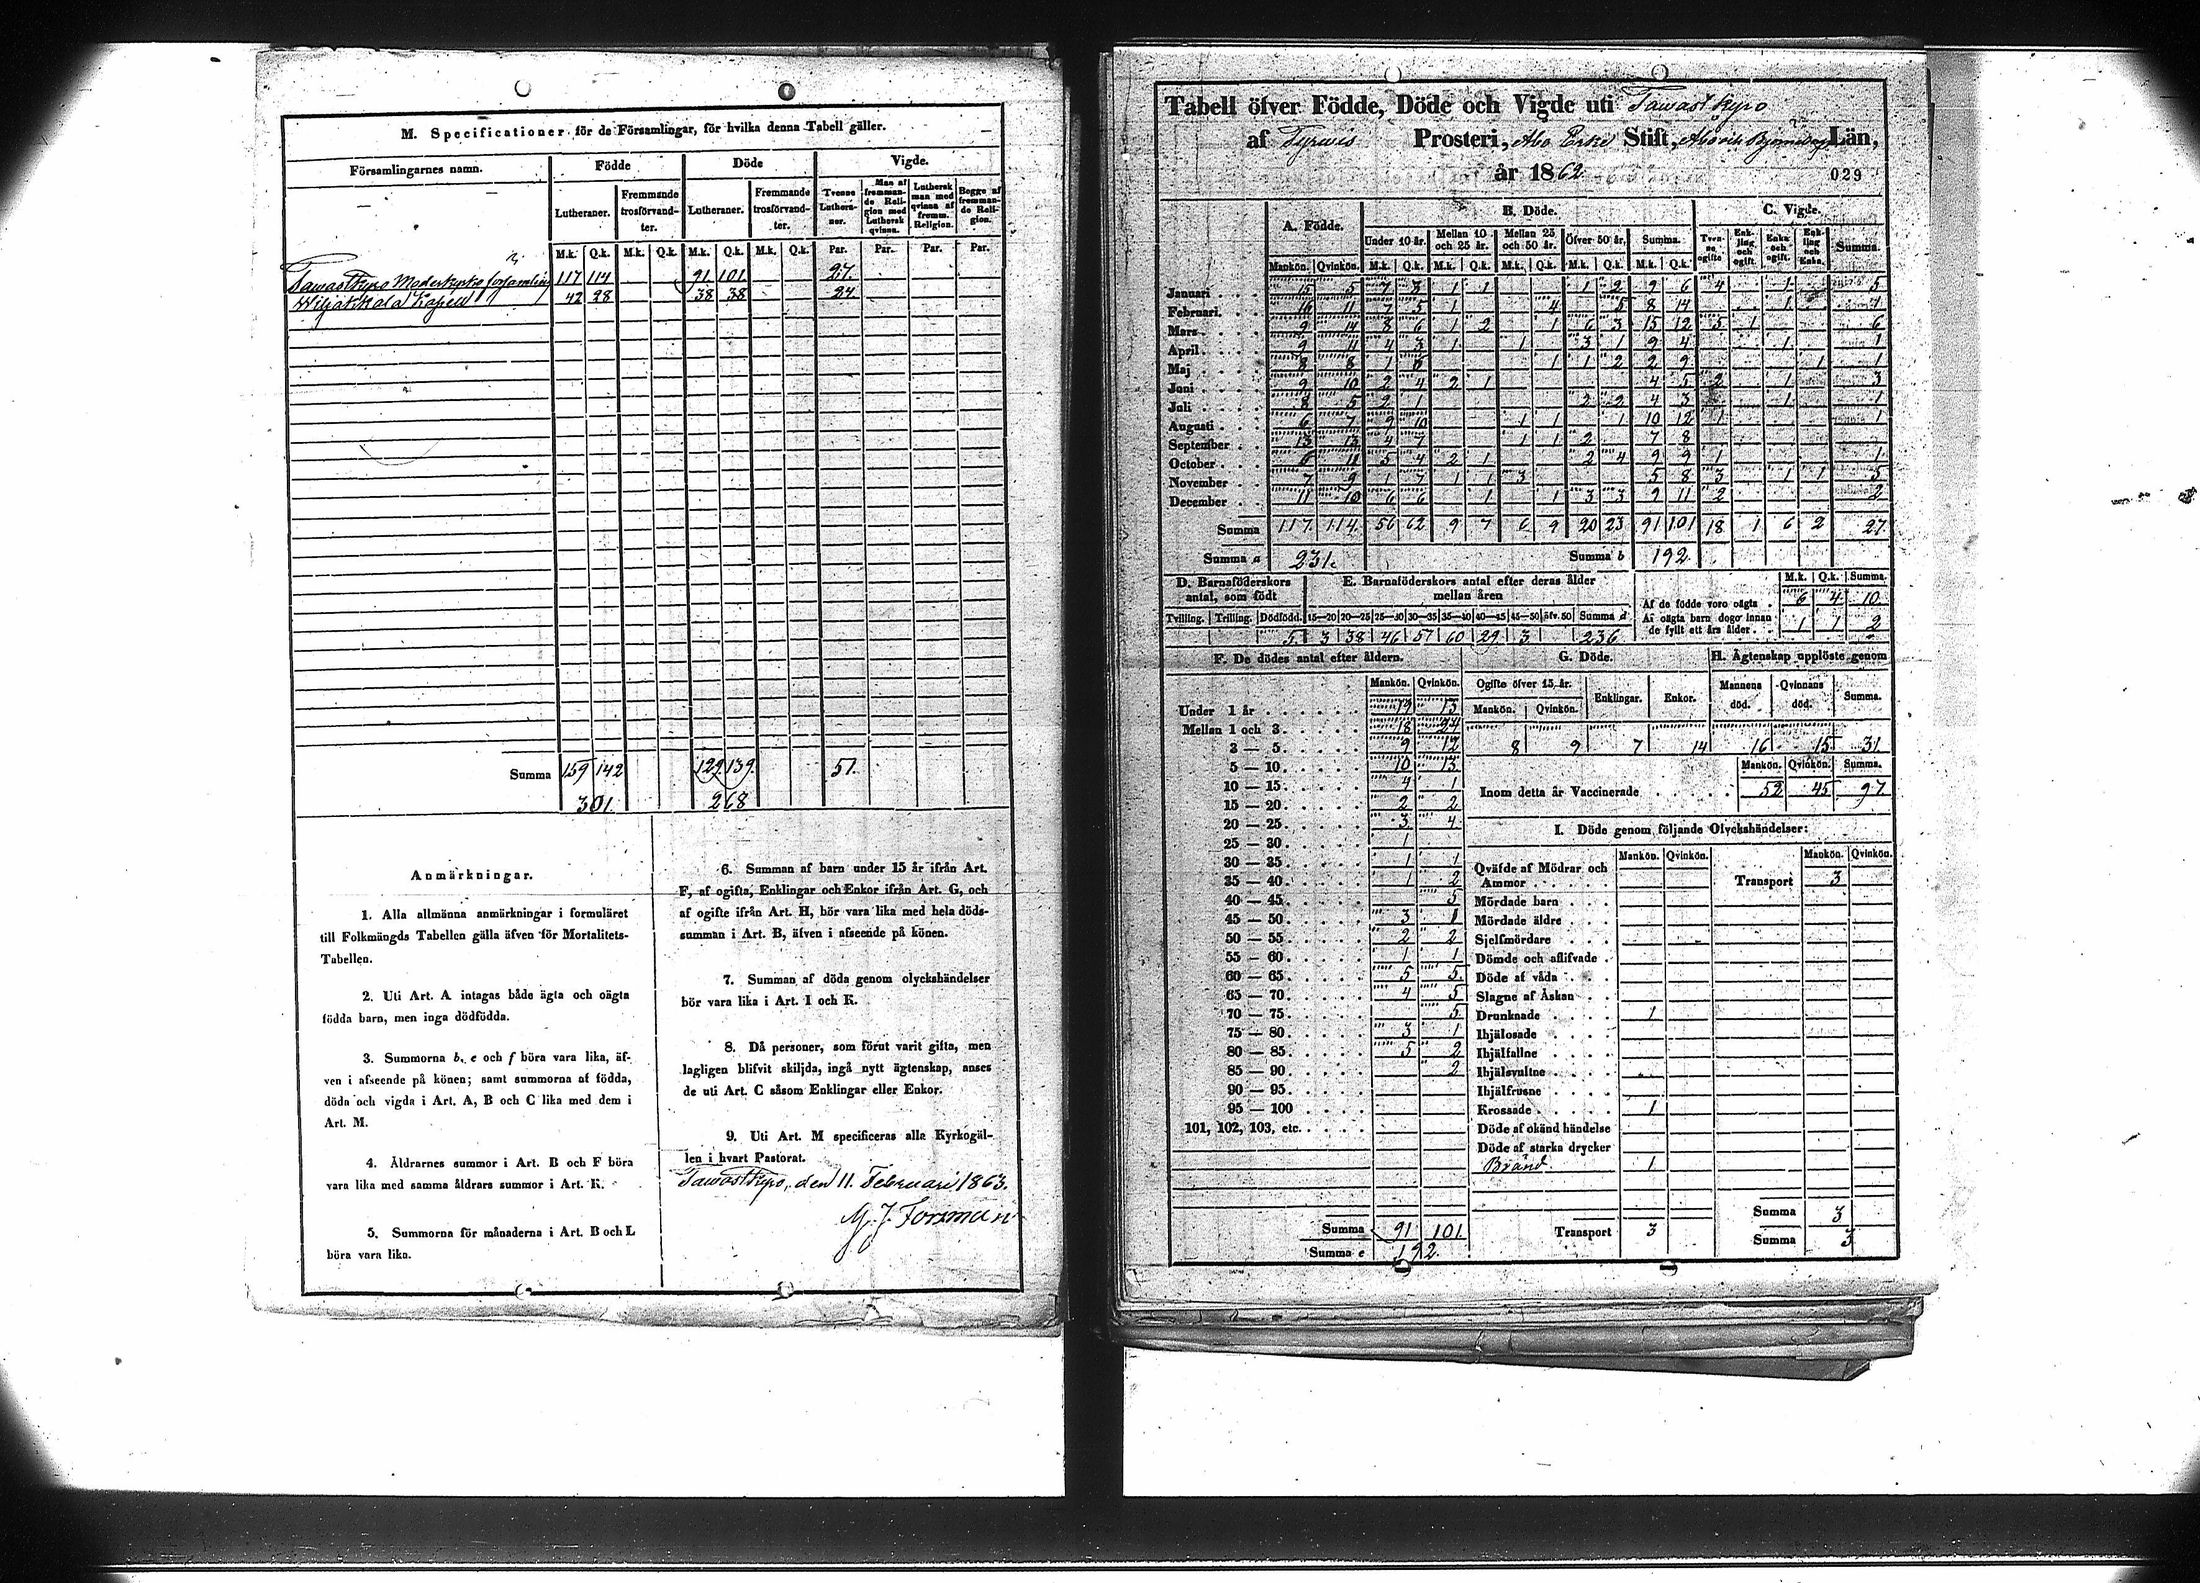 M. Specificationer för de Församlingar, för hvilka denna Tabell gäller.
Församlingarnes namn. Födde Döde Vigde.
Lutheraner. Fremmande trosförvandter. Lutheraner. Fremmande trosförvandter. Tvenne Lutheraner. Man af fremmande Religion med Luthersk qvinna. Luthersk man med qvinna af fremm. Religion. Begge af fremmande Religion.
M.k. Q.k. M.k. Q.k. M.k. Q.k. M.k. Q.k. Par. Par. Par. Par.
Tawastkyro Moderkyrko församling 117 114 91 101 27.
Wiljakkala Kapell 42 28 38 38 24
Summa 159 142 129 139 51.
301. 268
Anmärkningar.
1. Alla allmänna anmärkningar i formuläret
till Folkmängds Tabellen gälla äfven för Mortalitets-
Tabellen.
2. Uti Art. A intagas både ägta och oägta
födda barn, men inga dödfödda.
3. Summorna b, e och f böra vara lika, äf-
ven i afseende på könen; samt summorna af födda,
döda och vigda i Art. A, B och C lika med dem i
Art. M.
4. Åldrarnes summor i Art. B och F böra
vara lika med samma åldrars summor i Art. K.
5. Summorna för månaderna i Art. B och L
böra vara lika.
6. Summan af barn under 15 år ifrån Art.
F, af ogifta, Enklingar och Enkor ifrån Art. G, och
af ogifte ifrån Art. H, bör vara lika med hela döds-
summan i Art. B, äfven i afseende på könen.
7. Summan af döda genom olyckshändelser
bör vara lika i Art. I och K.
8. Då personer, som förut varit gifta, men
lagligen blifvit skiljda, ingå nytt ägtenskap, anses
de uti Art. C såsom Enklingar eller Enkor.
9. Uti Art. M specificeras alla Kyrkogäl-
len i hvart Pastorat.
Tawastkyro, den 11. Februari 1863.
M. J. Forsman
Tabell öfver Födde, Döde och Vigde uti Tawastkyro
af Tyrwis Prosteri, Åbo Erke Stift, Åbo och Björneborgs Län,
år 1862 029
A. Födde. B. Döde. C. Vigde.
Under 10 år. Mellan 10 och 25 år. Mellan 25 och 50 år. Öfver 50 år. Summa. Tvenne ogifte. Enkling och ogift. Enka och ogift. Enkling och Enka. Summa.
Mankön. Qvinkön. M.k. Q.k. M.k. Q.k. M.k. Q.k. M.k. Q.k. M.k. Q.k.
Januari 15 5 7 3 1 1 1 2 9 6 4 1 5
Februari. 16 11 7 5 1 4 5 8 14 1
Mars 9 14 8 6 1 2 1 6 3 15 12 5 1 6
April 9 11 4 3 1 1 3 1 9 4 1 1
Maj 8 8 1 6 1 1 2 2 9 1 1
Juni 9 10 2 4 2 1 4 5 2 1 3
Juli 8 5 2 1 2 2 4 3 1 1
Augusti 6 7 9 10 1 1 1 10 12 1 1
September 13 13 4 7 1 1 2 7 8
October 11 5 4 2 1 2 4 9 9 1 1
November 7 9 1 7 1 1 3 5 8 3 1 1 5
December 11 10 6 6 1 1 3 3 9 11 2 2
Summa 117. 114. 56 62 9 7 6 9 20 23 91 101 18 1 6 2 27
Summa a 231. Summa b 192
D. Barnaföderskors antal, som födt E. Barnaföderskors antal efter deras ålder mellan åren M.k. Q.k. Summa.
Tvilling. Trilling. Dödfödd. 15—20 20—25 25—30 30—35 35—40 40—45 45—50 öfv. 50 Summa d
5 3 38 46 57 60 29 3 236
Af de födde voro oägta 6 4 10
Af oägta barn dogo innan
de fyllt ett års ålder 1 1 2
F. De dödes antal efter åldern. G. Döde. H. Ägtenskap upplöste genom
Mankön. Qvinkön. Ogifte öfver 15 år. Enklingar. Enkor. Mannens död. Qvinnans död. Summa.
Mankön. Qvinkön.
8 9 7 14 16 15 31
Under 1 år 19 13
Mellan 1 och 3 18 24
3 — 5 9 12
5 — 10 10 13
10 — 15 4 1
15 — 20 2 2
20 — 25 3 4
25 — 30 1
30 — 35 1 1
35 — 40 1 2
40 — 45 5
45 — 50 3 1
50 — 55 2 2
55 — 60 1 1
60 — 65 5 5
65 — 70 4 5
70 — 75 5
75 — 80 3 1
80 — 85 5 2
85 — 90 2
90 — 95
95 — 100
101, 102, 103, etc.
Summa 91 101
Summa e 192
Mankön. Qvinkön. Summa.
Inom detta år Vaccinerade 52 45 97
I. Döde genom följande Olyckshändelser:
Mankön. Qvinkön. Mankön. Qvinkön.
Qväfde af Mödrar och
Ammor
Mördade barn
Mördade äldre
Sjelfmördare
Dömde och aflifvade
Döde af våda
Slagne af Åskan
Drunknade 1
Ihjälosade
Ihjälfallne
Ihjälsvultne
Ihjälfrusne
Krossade 1
Döde af okänd händelse
Döde af starka drycker
Bränd 1
Transport 3
Transport 3
Summa 3
Summa 3